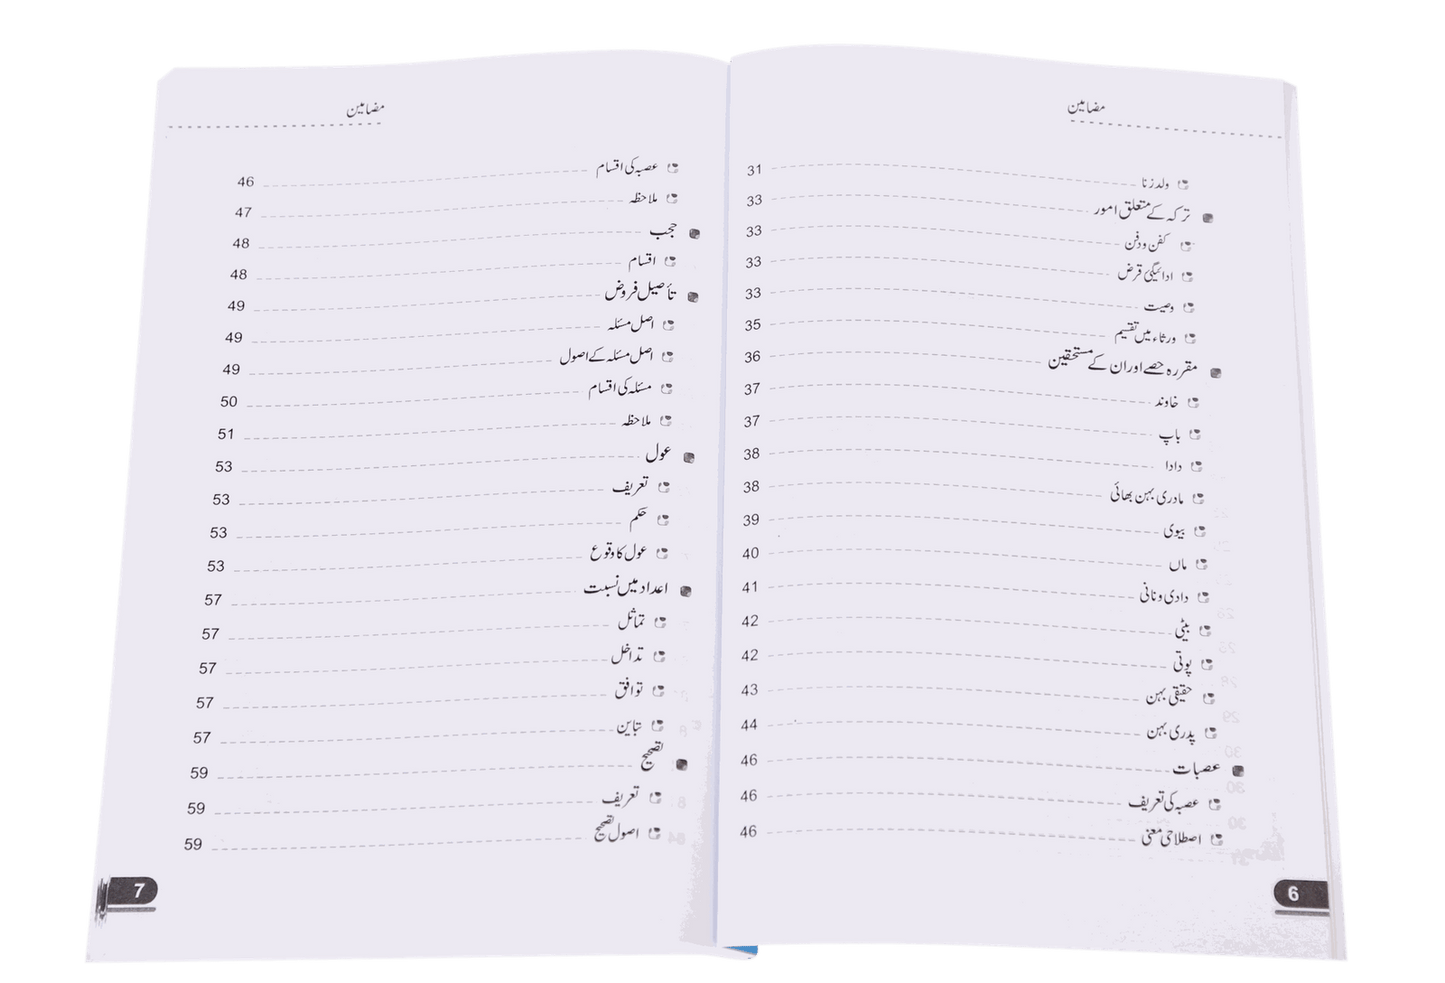 مضامین
ولد زنا 31
ترکہ کے متعلق امور 33
کفن و دفن 33
ادائیگیٔ قرض 33
وصیت 33
ورثاء میں تقسیم 35
مقررہ حصے اور ان کے مستحقین 36
خاوند 37
باپ 37
دادا 38
مادری بہن بھائی 38
بیوی 39
ماں 40
دادی و نانی 41
بیٹی 42
پوتی 42
حقیقی بہن 43
پدری بہن 44
عصبات 46
عصبہ کی تعریف 46
اصطلاحی معنی 46
6
مضامین
عصبہ کی اقسام 46
ملاحظہ 47
حجب 48
اقسام 48
تأصیل فروض 49
اصل مسئلہ 49
اصل مسئلہ کے اصول 49
مسئلہ کی اقسام 50
ملاحظہ 51
عول 53
تعریف 53
حکم 53
عول کا وقوع 53
اعداد میں نسبت 57
تماثل 57
تداخل 57
توافق 57
تباین 57
تصحیح 59
تعریف 59
اصول تصحیح 59
7